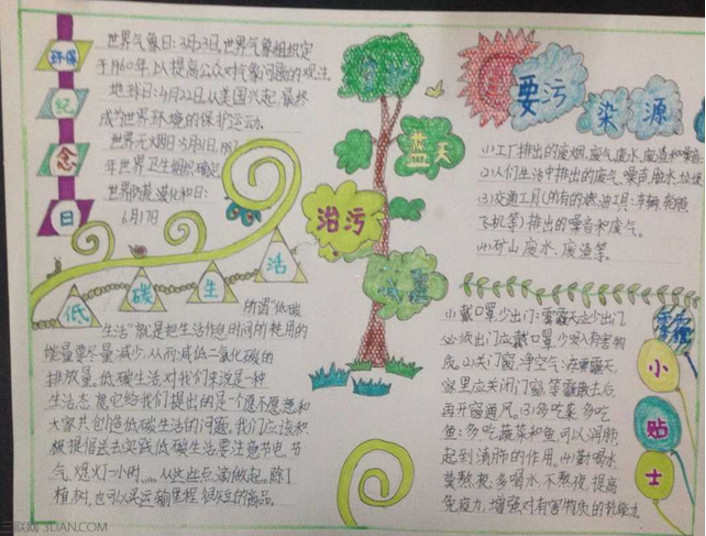 环保
纪
念
日
世界气象日:3月23日,世界气象组织定
于1960年,以提高公众对气象问题的观注。
地球日:4月22日,从美国兴起,最终
成为世界环境的保护运动。
世界无烟日:5月31日,
年世界卫生组织确定。
世界防荒漠化和日:
6月17日
低
碳
生
活
所谓“低碳
生活”就是把生活作息时间所耗用的
能量要尽量减少,从而减低二氧化碳的
排放量。低碳生活对我们来说是一种
生活态度,它给我们提出的是个愿不愿意和
大家共创造低碳生活的问题。我们应该积
极提倡去实践低碳生活要注意节电,节
气,熄灯一小时……从这些点滴做起。除了
植树,也可以是运输里程很短的商品。
蓝天
治污
要污
染源
(1)工厂排出的废烟、废气、废水、废渣和噪音;
(2)人们生活中排出的废气、噪声、脏水、垃圾
(3)交通工具(所有的燃油工具:车辆、轮船
飞机等)排出的噪音和废气。
(4)矿山废水、废渣等。
小
贴
士
(1)戴口罩,少出门:雾霾天应少出门
必须出门应戴口罩,少吸入有害物
质。(2)关门窗,净空气:在雾霾天
家里应关闭门窗,等雾散去后,
再开窗通风。(3)多吃菜,多吃
鱼:多吃蔬菜和鱼可以润肺
起到清肺的作用。(4)勤喝水
莫熬夜:多喝水,不熬夜,提高
免疫力,增强对有害物质的抵
三联网 3LIAN.COM